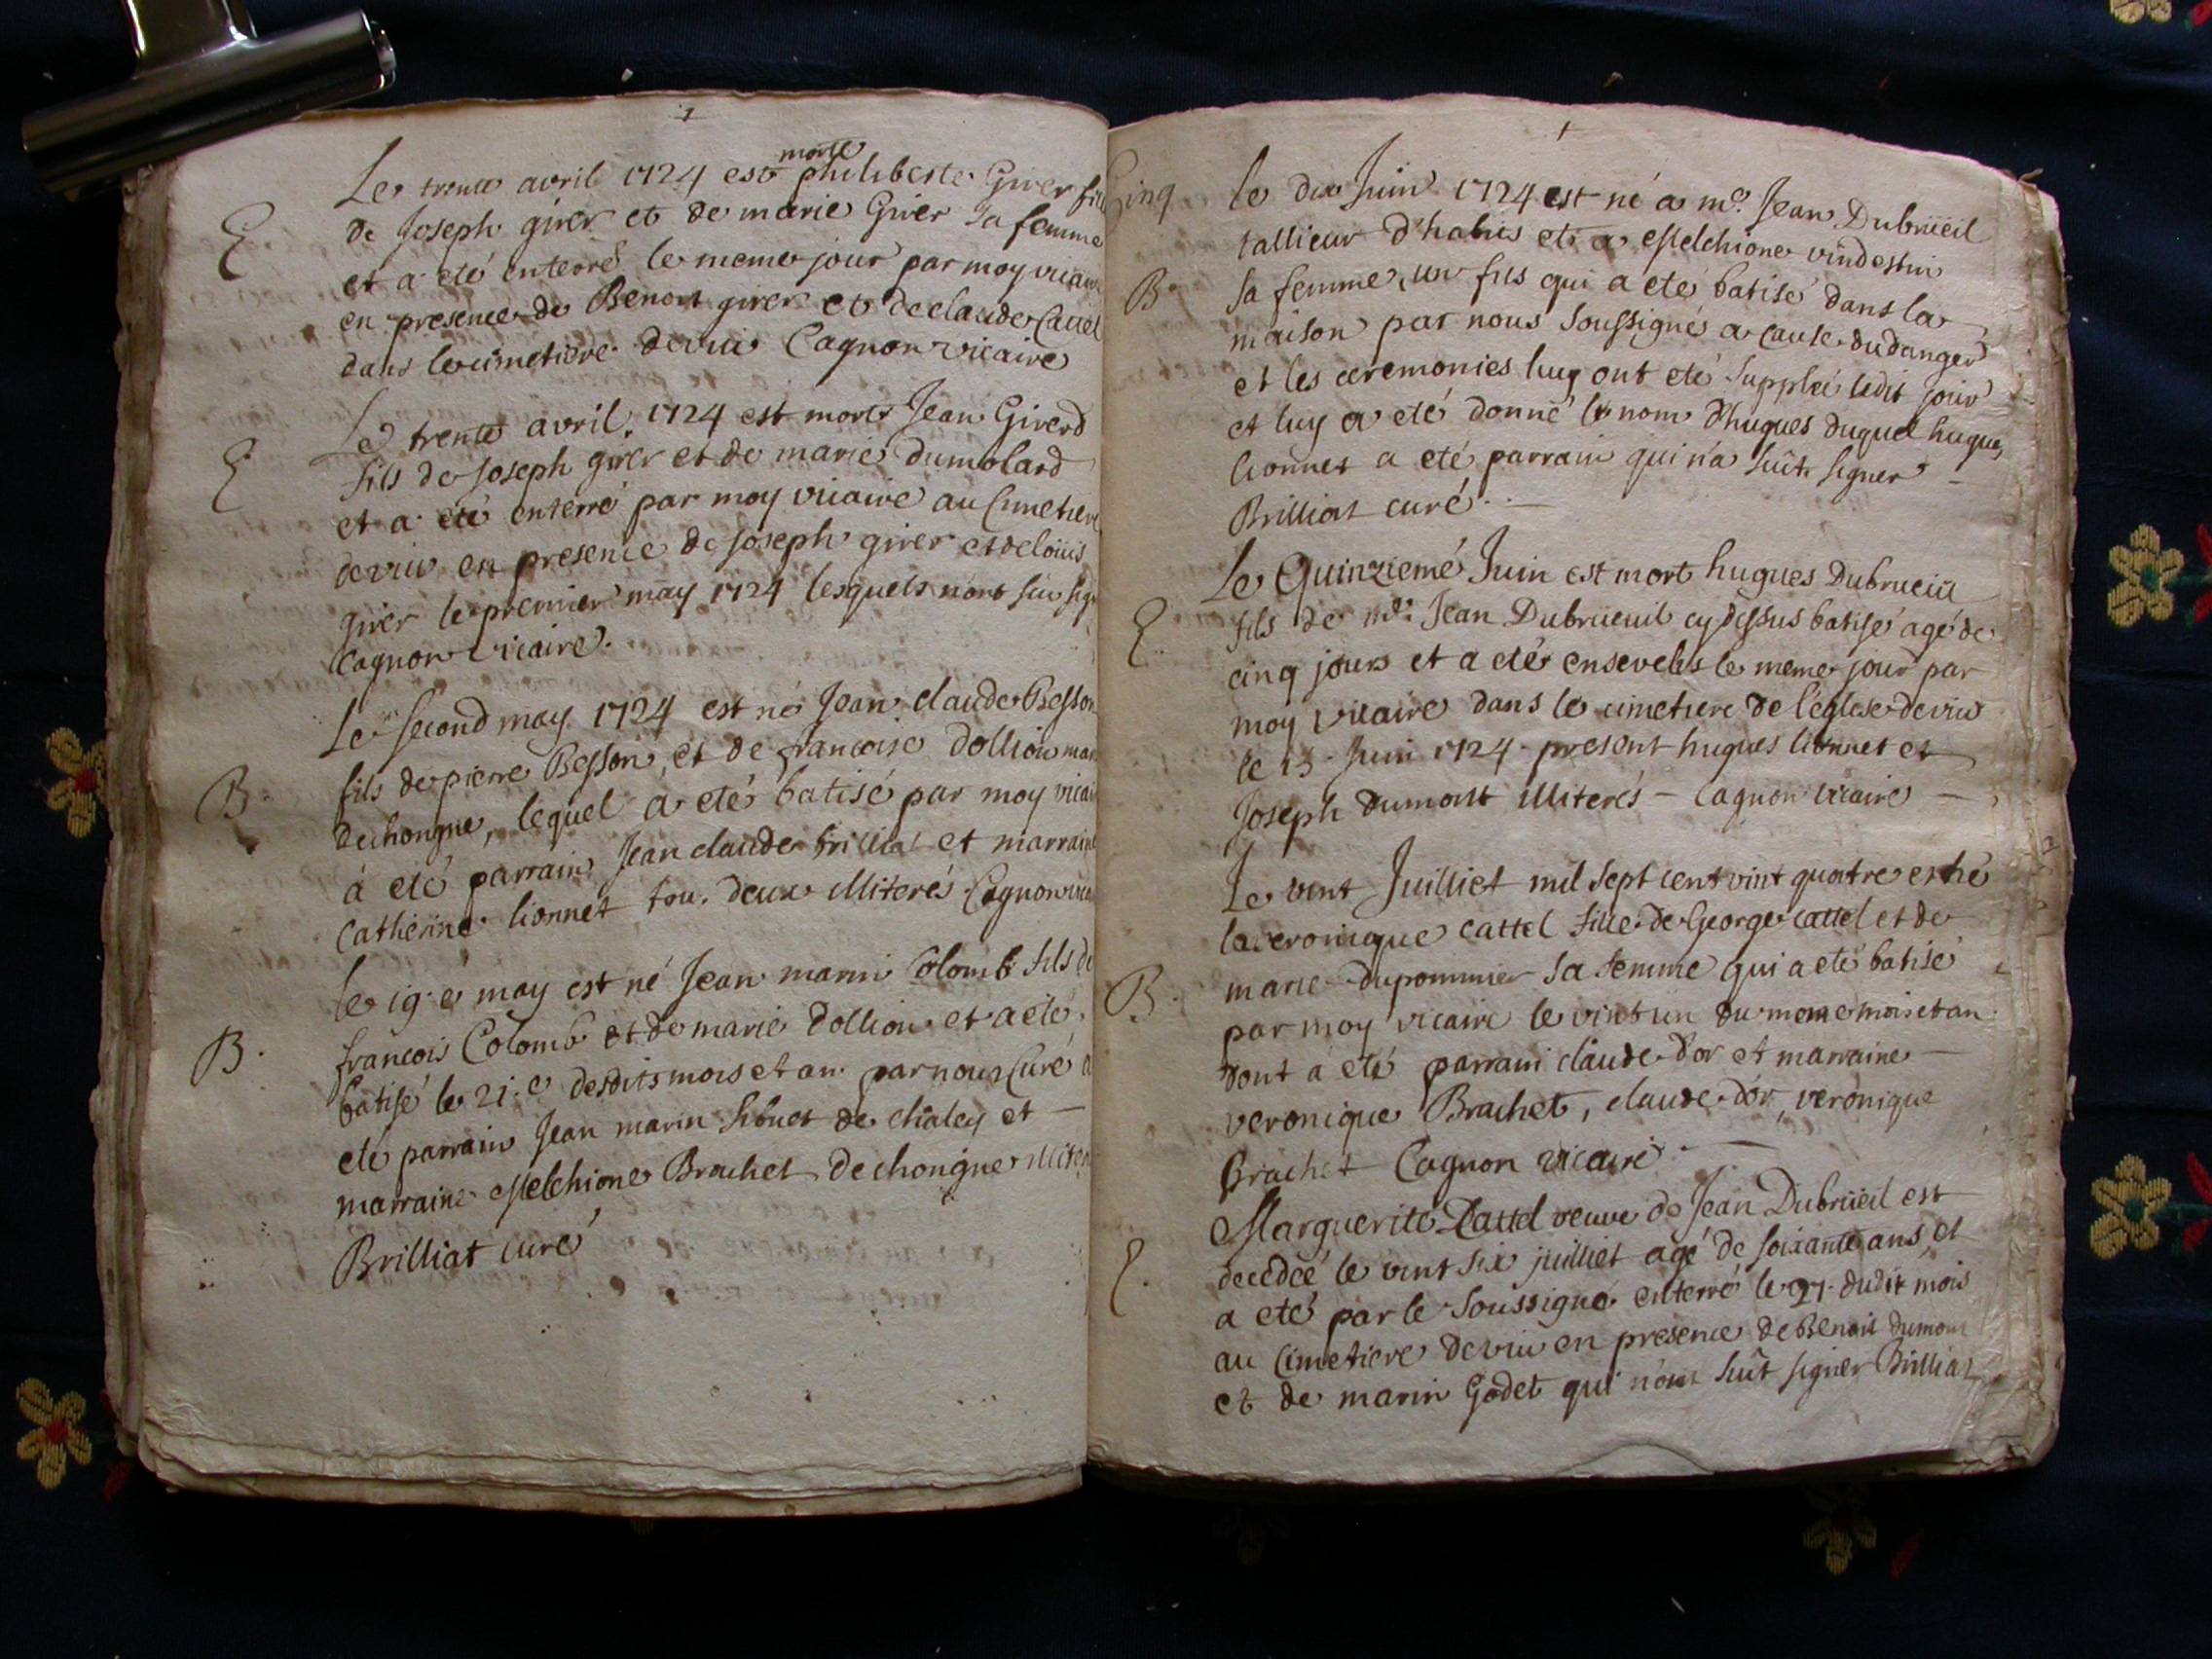 Le trente avril 1724 est morte philiberte Girer fille
E de Joseph girer et de marie Girer sa femme
et a eté enterré le meme jour par moy vicaire
en presence de Benoit girer et de claude Cattel
dans le cimetiere de viu Cagnon vicaire
Le trente avril 1724 est morts Jean Girerd
E fils de Joseph girer et de marie dumolard
et a eté enterré par moy vicaire au Cimetiere
de viu en presence de Joseph girer et de loüis
girer le premier may 1724 lesquels n'ont sçu sign
Cagnon vicaire.
Le second may 1724 est né Jean claude Besson
B fils de pierre Besson et de francoise dollion ma
de chongne, lequel a eté batisé par moy vicai
à eté parrain Jean claude brilliat et marraine
Catherine lionnet tou. deux illiterés Cagnon vica
le 19.e may est né Jean marin Colomb fils de
B. francois Colomb et de marie dollion et a eté
batisé le 21.e desdits mois et an par nous Curé a
eté parrain Jean marin sibuet de chaley et —
marraine Melchione Brachet de chongne illiter
Brilliat curé
Cinq. le dix Juin 1724 est né a m.e Jean Dubrüeil
tallieur d'habis et a Melchione vindestin
B. sa femme, un fils qui a eté batisé dans la
maison par nous soussigné a cause du danger
et les ceremonies luy ont eté suppleé ledit jour
et luy a eté donné le nom d'hugues duquel hugues
lionnet a eté parrain qui n'a suût signer —
Brilliat curé. —
Le Quinziemé Juin est mort hugues Dubrueiil
E. fils de m.e Jean Dubrüeuil cy dessus batisé agé de
cinq jours et a eté ensevelis le meme jour par
moy vicaire dans le cimetiere de l'eglise de viu
le 15 Juin 1724 present hugues lionnet et
Joseph dumont illiterés — Cagnon vicaire —
Le vint Juilliet mil sept cent vint quatre est né
la veronique cattel fille de George cattel et de
B. marie dupommier sa femme qui a eté batisé
par moy vicaire le vint un du meme mois et an
dont à eté parrain claude dor et marraine —
veronique Brachet, claude dor, veronique
Brachet Cagnon vicaire —
Marguerite Cattel veuve de Jean Dubrüeil est
E. decedeé le vint six juilliet agé de soixante ans et
a eté par le soussigné enterré le 27. dudit mois
au Cimetiere de viu en presence de Benoit dumont
et de marin Godet qui n'ont suût signer Brilliat